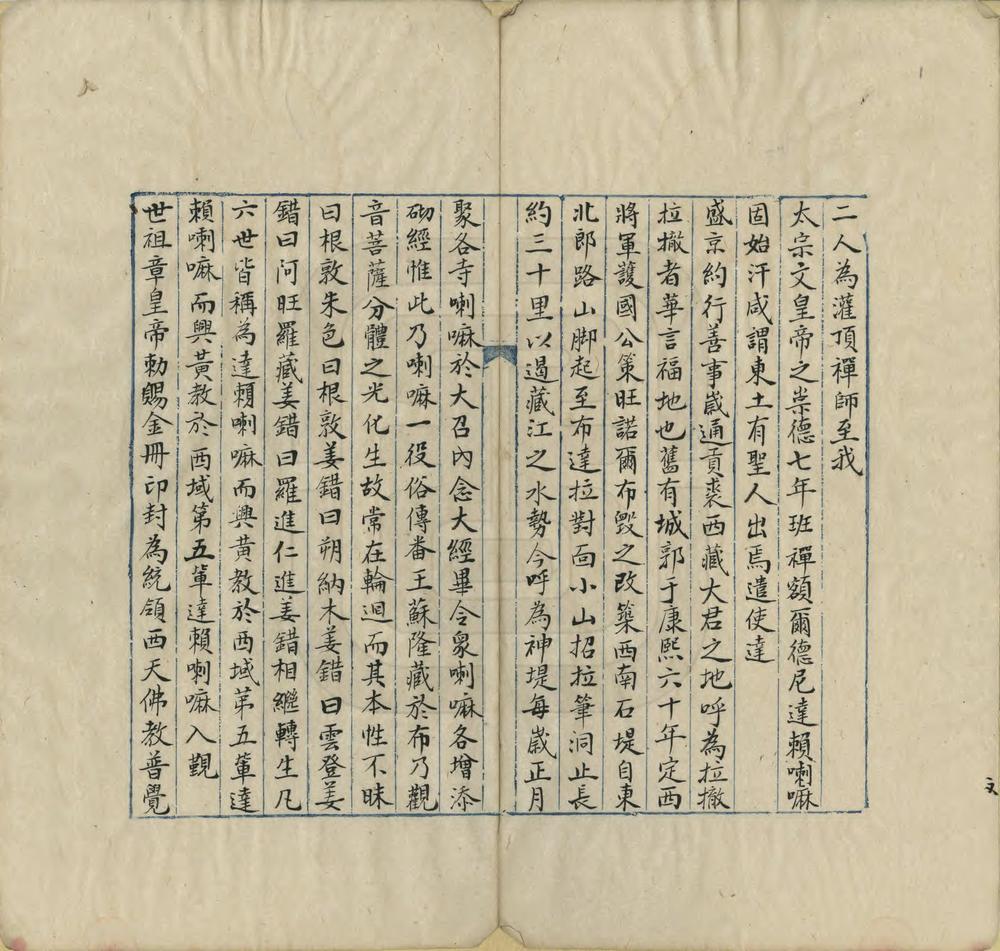 二人為灌頂禪師至我
太宗文皇帝之崇德七年班禪額爾德尼達賴喇嘛
固始汗咸謂東土有聖人出焉遣使達
盛京約行善事歲通貢裘西藏大君之地呼為拉撤
拉撤者華言福地也舊有城郭于康熙六十年定西
將軍護國公策旺諾爾布毀之改築西南石堤自東
北郎路山脚起至布達拉對面小山招拉筆洞止長
約三十里以過藏江之水勢今呼為神堤每歲正月
聚各寺喇嘛於大召內念大經畢令眾喇嘛各增添
砌經惟此乃喇嘛一役俗傳番王蘇隆藏於布乃觀
音菩薩分體之光化生故常在輪迴而其本性不昧
曰根敦朱色曰根敦姜錯曰朔納木姜錯曰雲登姜
錯曰阿旺羅藏姜錯曰羅進仁進姜錯相繼轉生凡
六世皆稱為達賴喇嘛而興黃教於西域苐五輩達
賴喇嘛而興黃教於西域第五輩達賴喇嘛入覲
世祖章皇帝勅賜金冊印封為統領西天佛教普覺